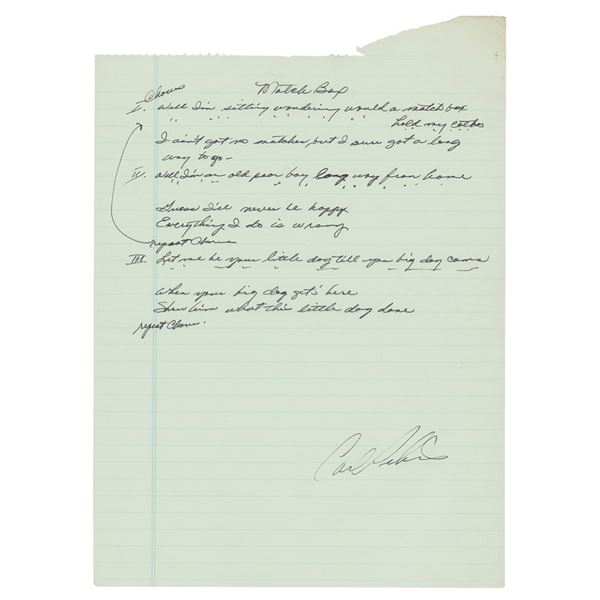 Match Box
Chorus
I. Well I'm sitting wondering would a match box
hold my clothes
I ain't got no matches, but I sure got a long
way to go -
II. Well I'm an old poor boy long way from home
Guess I'll never be happy
Everything I do is wrong
repeat Chorus
III. Let me be your little dog till your big dog comes
When your big dog get's here
Show him what this little dog done
repeat Chorus.
Carl Perkins